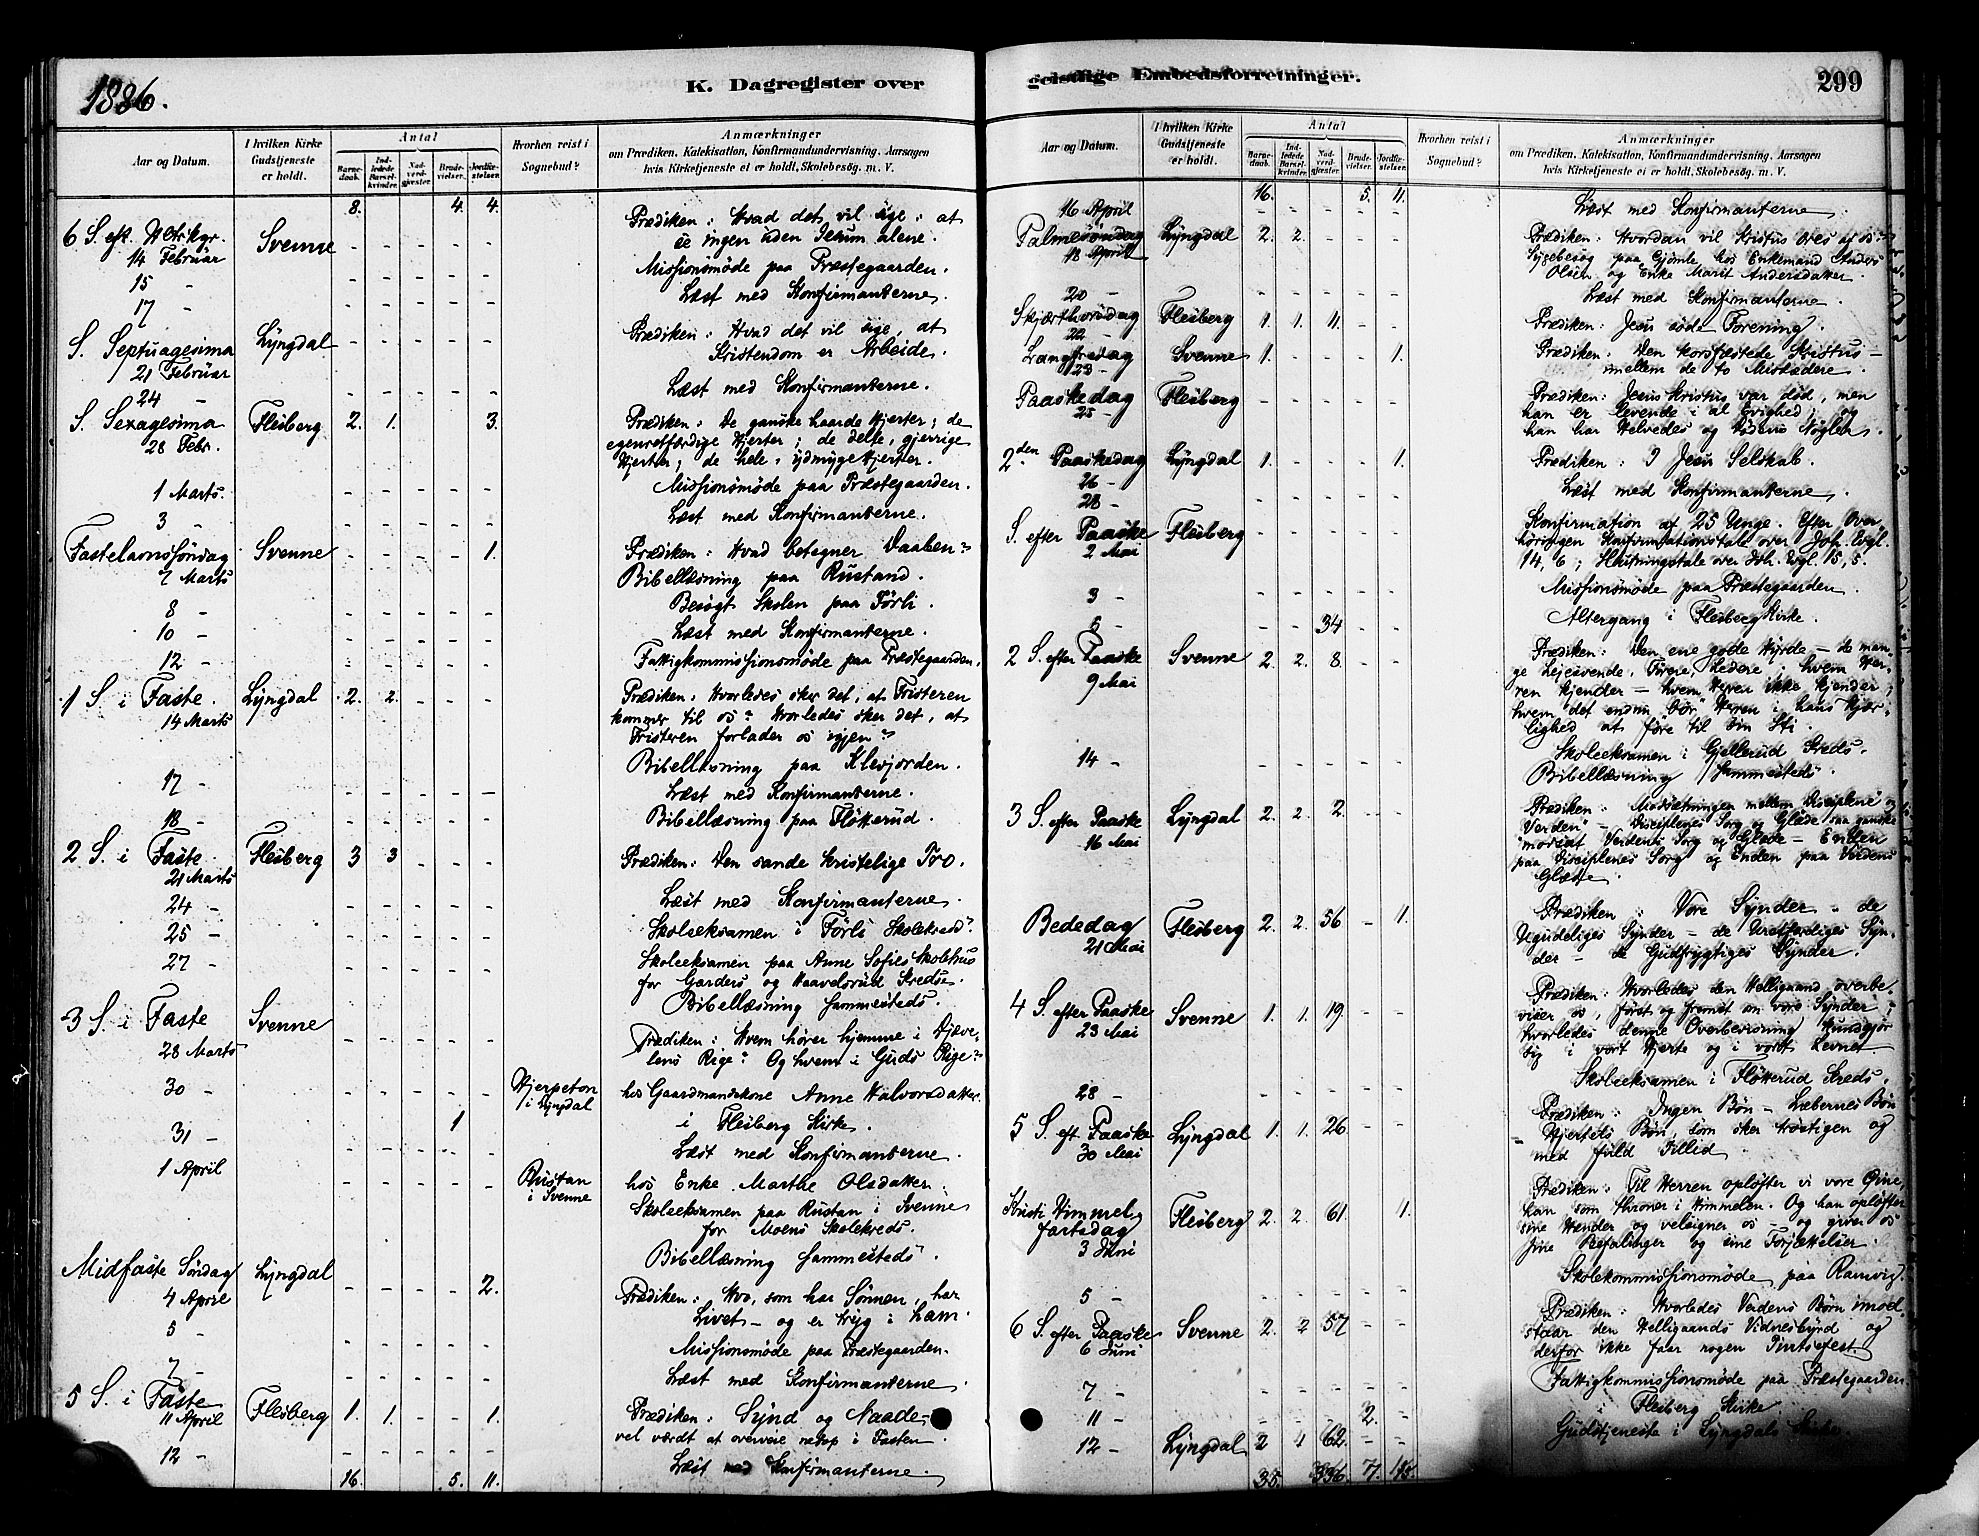 1886.
K. Dagregister over
Aar og Datum.
I hvilken Kirke Gudstjeneste er holdt.
Antal
Barne-daab.
Ind-ledede Barsel-kvinder.
Nad-verd-gjæster.
Brude-vielser.
Jordfæ-stelser.
Hvorhen reist i Sognebud?
Anmærkninger
om Prædiken, Katekisation, Konfirmandundervisning, Aarsagen
hvis Kirketjeneste ei er holdt, Skolebesøg. m. V.
8. 4. 4.
6 S. eft. Hetrkgr. 14 Februar Svenne - - - - - Prædiken: Hvad det vil sige: at
se ingen uden Jesum alene.
15 - - - - - - Missionsmøde paa Præstegaarden.
17 - - - - - - Læst med Konfirmanterne.
S. Septuagesima 21 Februar Lyngdal - - - - - Prædiken: Hvad det vil sige, at
Kristendom er Arbeide.
24 - - - - - - Læst med Konfirmanterne.
S. Sexagesima 28 Febr. Flesberg 2. 1. 3. Prædiken: De ganske haarde Hjerter; de
egenretfærdige Hjerter; de delte, gjerrige
Hjerter; de hele, ydmyge Hjerter.
1 Marts. - - - - - Missionsmøde paa Præstegaarden.
3 - - - - - - Læst med Konfirmanterne.
Fastelavnssöndag 7 Marts Svenne - - - - 1. Prædiken: Hvad betegner Daaben?
Bibellæsning paa Rustand.
8 - - - - - - Besøgt Skolen paa Förli.
10 - - - - - - Læst med Konfirmanterne.
12 - - - - - - Fattigkommissionsmøde paa Præstegaarden.
1 S. i Faste. 14 Marts Lyngdal 2. 2. - - - Prædiken: Hvorledes sker det, at Fristeren
kommer til os? Hvorledes sker det, at
Fristeren forlader os igjen?
Bibellæsning paa Klevjorden.
17 - - - - - - Læst med Konfirmanterne.
18 - - - - - - Bibellæsning paa Fløtterud.
2 S. i Faste. 21 Marts Flesberg 3 3 - - - Prædiken: Den sande kristelige Tro.
24 - - - - - - Læst med Konfirmanterne.
25 - - - - - - Skoleeksamen i Förli Skolekreds.
27 - - - - - - Skoleeksamen paa Anne Sofies Skolehus
for Gaarders og Haavelsrud Kredse.
Bibellæsning sammesteds.
3 S. i Faste 28 Marts Svenne - - - - - Prædiken: Hvem hører hjemme i Djæve-
lens Rige? Og hvem i Guds Rige?
30 - - - - - - i Lyngdal hos Gaardmandskone Anne Halvorsdatter.
31 - 1 i Flesberg Kirke.
1 April - - - - - Læst med Konfirmanterne.
Rustan i Svenne hos Enke Marthe Olsdatter.
Skoleeksamen paa Rustan i Svenne
for Moens Skolekreds.
Bibellæsning sammesteds.
Midfaste Søndag 4 April Lyngdal - - - - 2. Prædiken: Hvo, som har Sønnen, har
Livet - og er tryg i ham.
5 - - - - - - Missionsmøde paa Præstegaarden.
7 - - - - - - Læst med Konfirmanterne.
5 S. i Faste 11 April Flesberg 1. 1. - - 1. Prædiken: Synd og Naade -
vel værdt at overveie netop i Fasten.
12 - - - - - - Læst med Konfirmanterne.
16. 5. 11.
geistlige Embedsforretninger.
299
Aar og Datum.
I hvilken Kirke Gudstjeneste er holdt.
Antal
Barne-daab.
Ind-ledede Barsel-kvinder.
Nad-verd-gjæster.
Brude-vielser.
Jordfæ-stelser.
Hvorhen reist i Sognebud?
Anmærkninger
om Prædiken, Katekisation, Konfirmandundervisning, Aarsagen
hvis Kirketjeneste ei er holdt, Skolebesøg. m. V.
16. 5. 11.
16 April - - - - - Læst med Konfirmanterne.
Palmesöndag 18 April Lyngdal 2. 2. - - - Prædiken: Hvordan vil Kristus æres af os?
Sygebesøg paa Gjömle hos Enkemand Anders
Olsen og Enke Marit Andersdatter.
20 - - - - - - Læst med Konfirmanterne.
Skjærthorsdag 22 - Flesberg 1. 1. 11. - - Prædiken: Jesu søde Forening.
Langfredag 23 - Svenne 1. - - - 1. Prædiken: Den korsfæstede Kristus -
mellem de to Misdædere.
Paaskedag 25 - Flesberg - - - - - Prædiken: Jesus Kristus var død, men
han er levende i al Evighed, og
han har Helvedes og Dødens Nøgler.
2den Paaskedag 26 - Lyngdal 1. - - - 1. Prædiken: I Jesu Selskab.
28 - - - - - - Læst med Konfirmanterne.
S. efter Paaske 2. Mai Flesberg - - - - - Konfirmation af 25 Unge. Efter Over-
höringen Konfirmationstale over Joh. Evgl.
14, 6; Slutningstale over Joh. Evgl. 15, 5.
3 - - - - - - Missionsmøde paa Præstegaarden.
- - 34 - - Altergang i Flesberg Kirke.
2 S. efter Paaske 9 Mai Svenne 2. 2. 8. - - Prædiken: Den ene gode Hyrde - de man-
ge Leiesvende, Tyve, Hedere; hvem Her-
ren kjender - hvem Herren ikke kjender;
hvem det endnu bør Herren i hans Kjær-
lighed at føre til sin Sti.
14 - - - - - - Skoleeksamen i Gjellerud Kreds.
Bibellæsning sammesteds.
3 S. efter Paaske 16 Mai Lyngdal 2. 2. 2. - - Prædiken: Modsætningen mellem Disciplene og
Verden - Disciplenes Sorg og Glæde saa ganske
modsat Verdens Sorg og Glæde - Enden
paa Disciplenes Sorg og Enden paa Verdens
Glæde.
Bededag 21 Mai Flesberg 2. 2. 56 - 1. Prædiken: Vore Synder - de
Ugudeliges Synder - de Uretfærdiges Syn-
der - de Gudfrygtiges Synder.
4 S. efter Paaske 23 Mai Svenne 1. 1. 19 - - Prædiken: Hvorledes den Helligaand overbe-
viser os, først og fremst om vore Synder;
hvorledes denne Overbevisning kundgjør
sig i vort Hjerte og i vort Levnet.
28 - - - - - - Skoleeksamen i Fløtterud Kreds.
5 S. eft. Paaske 30 Mai Lyngdal 1. 1. 26 - - Prædiken: Ingen Bøn - Læbernes Bøn
- Hjertets Bøn, som sker trøstigen og
med fuld Tillid.
Kristi Himmel-fartsdag 3 Juni Flesberg 2. 2. 61. 1. Prædiken: Til Herren opløfter vi vore Øine,
han, som throner i Himmelen. Og han opløfter
sine Hænder og velsigner os - og giver os
sine Befalinger og sine Forjættelser.
5 - - - - - - Skolekommissionsmøde paa Ramvig.
6 S. efter Paaske 6 Juni Svenne 2. 2 57 - - Prædiken: Hvorledes Verdens Børn imod-
staar den Helligaands Vidnesbyrd og
derfor ikke faar nogen Pintsefest.
7 - - - - - - Fattigkommissionsmøde paa Præstegaarden.
11 - - - - 2. - i Flesberg Kirke
12 - Lyngdal 2 1 62. - - Gudstjeneste i Lyngdals Kirke.
35. 336. 7. 15.